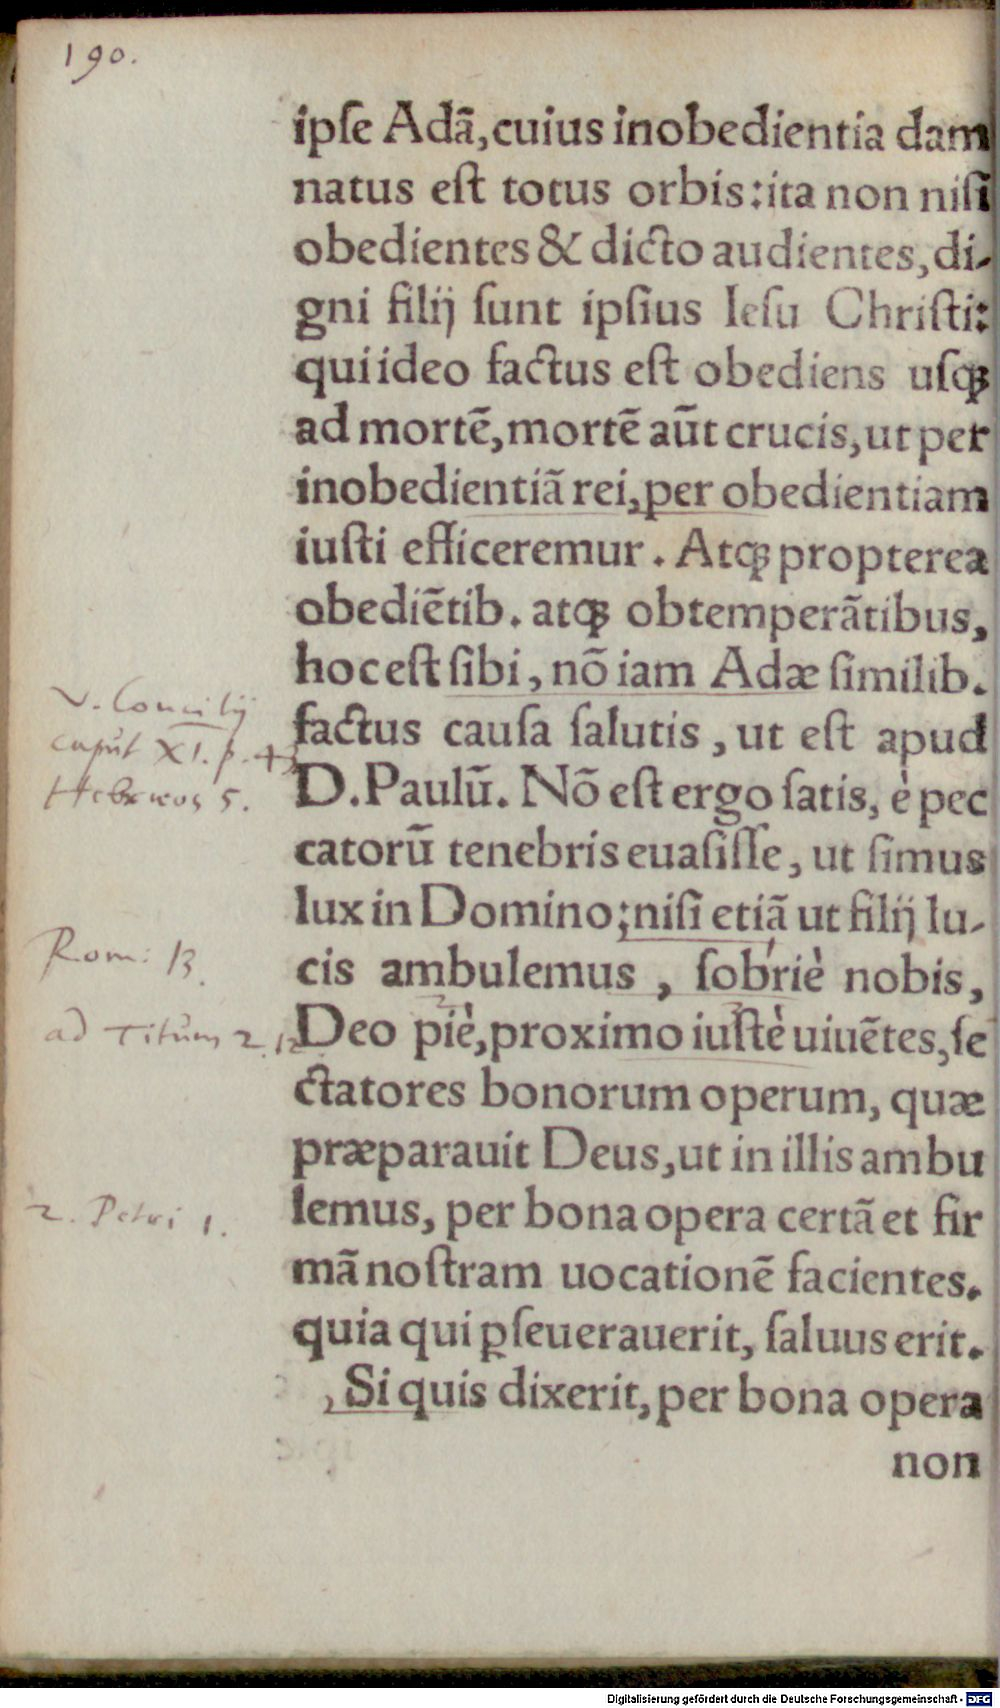 190.
ipſe Adã, cuius inobedientia dam
natus eſt totus orbis: ita non niſi
obedientes & dicto audientes, di-
gni filij ſunt ipſius Ieſu Chriſti:
qui ideo factus eſt obediens uſqꝫ
ad mortẽ, mortẽ aũt crucis, ut per
inobedientiã rei, per obedientiam
iuſti efficeremur. Atqꝫ propterea
obediẽtib. atqꝫ obtemperãtibus,
hoc eſt ſibi, nõ iam Adæ ſimilib.
factus cauſa ſalutis, ut eſt apud
D. Paulũ. Nõ eſt ergo ſatis, è pec
catorũ tenebris euaſiſſe, ut ſimus
lux in Domino; niſi etiã ut filij lu-
cis ambulemus, ſobriè nobis,
Deo piè, proximo iuſtè uiuẽtes, ſe
ctatores bonorum operum, quæ
præparauit Deus, ut in illis ambu
lemus, per bona opera certã et fir
mã noſtram uocationẽ facientes.
quia qui ꝑſeuerauerit, ſaluus erit.
, Si quis dixerit, per bona opera
non
V. Concilij
caput XI. p. 43
Hebræos 5.
Rom: 13.
ad Titum 2. 12
2. Petri 1.
Digitalisierung gefördert durch die Deutsche Forschungsgemeinschaft - DFG